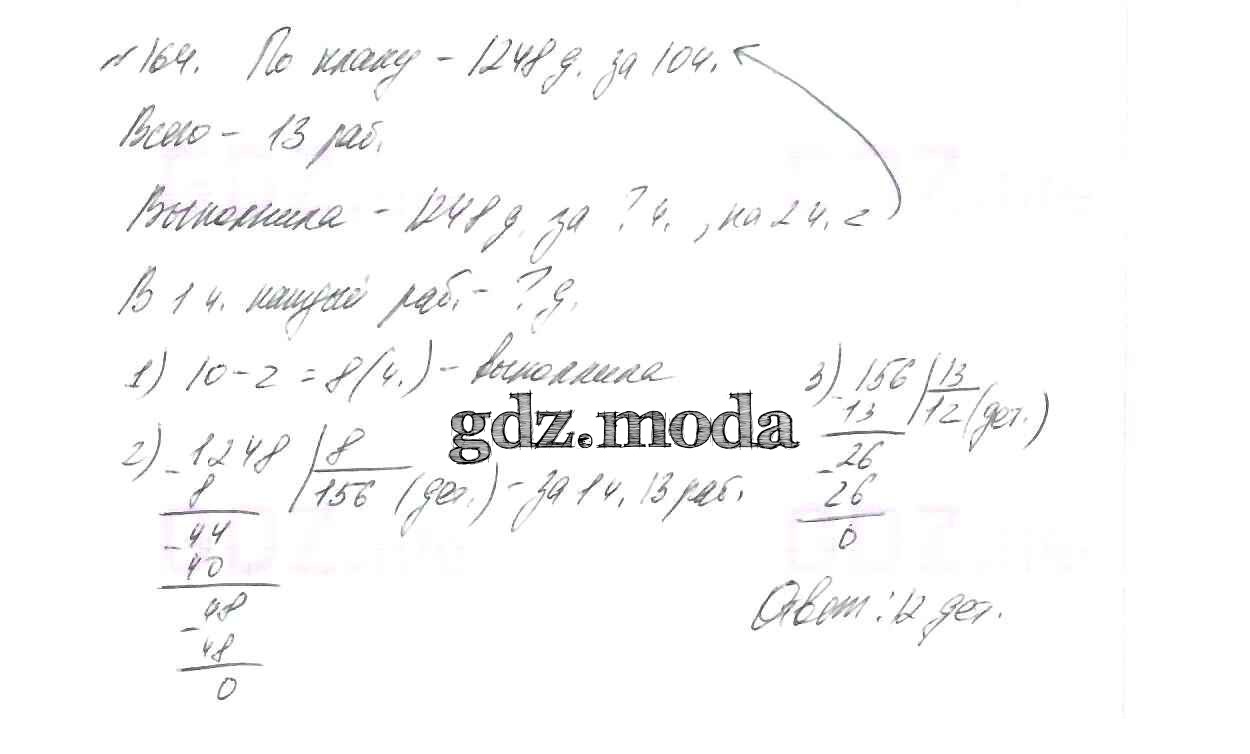 №164. По плану – 1248 д. за 10ч.
Всего – 13 раб.
Выполнила – 1248 д. за ? ч., на 2 ч. <
В 1 ч. каждый раб. – ? д.
1) 10 – 2 = 8 (ч.) – выполнила
2) 1248 | 8
8
156 (дет.) – за 1 ч. 13 раб.
- 44
40
- 48
48
0
3) 156 | 13
13
12 (дет.)
- 26
26
0
Ответ: 12 дет.
gdz.moda